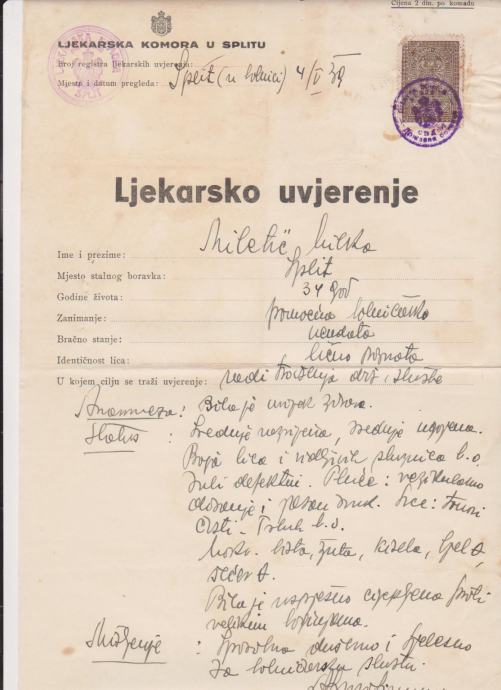 Cijena 2 din. po komadu
LJEKARSKA KOMORA U SPLITU
Broj registra ljekarskih uvjerenja:
Mjesto i datum pregleda: Split (u bolnici) 4/V 39
Ljekarsko uvjerenje
Ime i prezime: Miletić Milka
Mjesto stalnog boravka: Split
Godine života: 34 god
Zanimanje: pomoćna bolničarka
Bračno stanje: neudata
Identičnost lica: lično poznata
U kojem cilju se traži uvjerenje: radi traženja drž. službe
Anamneza: Bila je uvijek zdrava.
Status: Srednje razvijena, srednje uhranjena.
Boja lica i vidljivih sluznica b.o.
Zubi defektni. Pluća: vezikularno
disanje i jasan zvuk. Srce: tonovi
čisti. Trbuh b.o.
bistra, žuta, kisela,
Bila je uspješno cijepljena proti
velikim boginjama.
Mišljenje: Sposobna duševno i tjelesno
za bolničarsku službu.